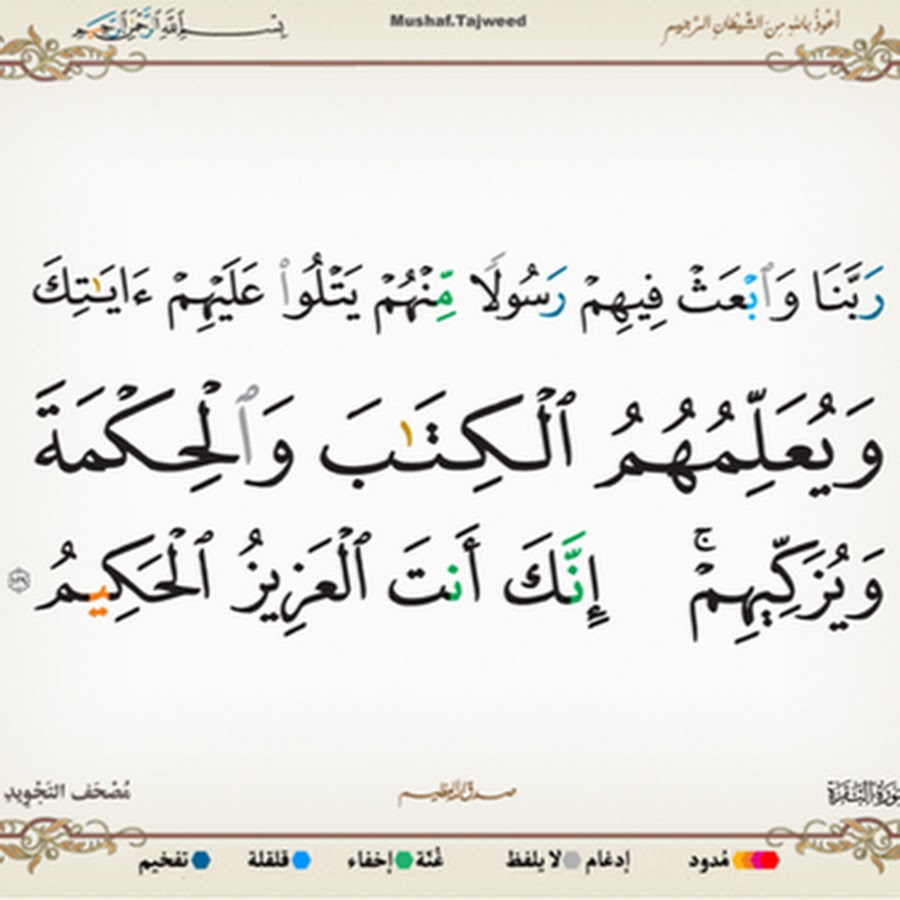 أعوذ بالله من الشيطان الرجيم Mushaf.Tajweed بسم الله الرحمن الرحيم
رَبَّنَا وَٱبۡعَثۡ فِيهِمۡ رَسُولٗا مِّنۡهُمۡ يَتۡلُواْ عَلَيۡهِمۡ ءَايَٰتِكَ
وَيُعَلِّمُهُمُ ٱلۡكِتَٰبَ وَٱلۡحِكۡمَةَ
وَيُزَكِّيهِمۡۚ إِنَّكَ أَنتَ ٱلۡعَزِيزُ ٱلۡحَكِيمُ
سورة البقرة صدق الله العظيم مُصْحَف التَجْوِيدِ
مُدود إدغام لا يلفظ غُنّة إخفاء قلقلة تفخيم